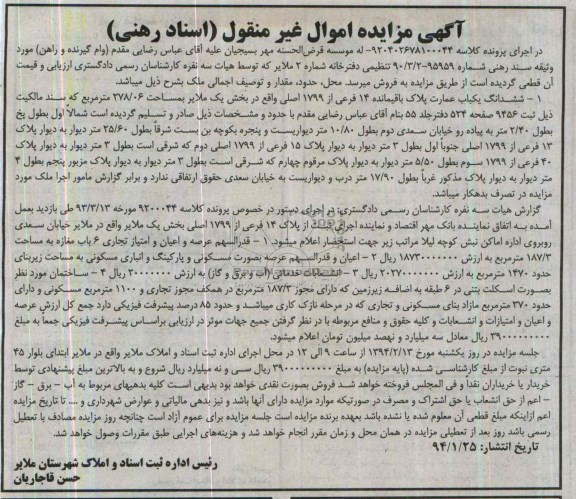 آگهی مزایده اموال غیر منقول (اسناد رهنی)
در اجرای پرونده کلاسه ۹۲۰۴۰۲۶۷۸۱۰۰۰۴۴- له موسسه قرض‌الحسنه مهر بسیجیان علیه آقای عباس رضایی مقدم (وام گیرنده و راهن) مورد
وثیقه سند رهنی شماره ۹۵۹۵۹-۹۰/۳/۲ تنظیمی دفترخانه شماره ۲ ملایر که توسط هیات سه نفره کارشناسان رسمی دادگستری ارزیابی و قیمت
آن قطعی گردیده است از طریق مزایده به فروش میرسد. محل، حدود، مقدار و توصیف اجمالی ملک بشرح ذیل میباشد.
۱ – ششدانگ یکباب عمارت پلاک باقیمانده ۱۴ فرعی از ۱۷۹۹ اصلی واقع در بخش یک ملایر بمساحت ۲۷۸/۰۶ مترمربع که سند مالکیت
ذیل ثبت ۹۴۵۶ صفحه ۵۲۴ دفترجلد ۵۵ بنام آقای عباس رضایی مقدم با حدود و مشخصات ذیل صادر و تسلیم گردیده است شمالاً اول بطول پخ
بطول ۲/۴۰ متر به پیاده رو خیابان سعدی دوم بطول ۱۰/۸۰ متر دیواریست و پنجره بکوچه بن بست شرقاً بطول ۲۵/۶۰ متر دیوار به دیوار پلاک
۱۳ فرعی از ۱۷۹۹ اصلی جنوباً اول بطول ۳ متر دیوار به دیوار پلاک ۱۵ فرعی از ۱۷۹۹ اصلی دوم که شرقی است بطول ۳ متر دیوار به دیوار پلاک
۴۰ فرعی از ۱۷۹۹ سوم بطول ۵/۵۰ متر دیوار به دیوار پلاک مرقوم چهارم که شرقی است بطول ۳ متر دیوار به دیوار پلاک مزبور پنجم بطول ۴
متر دیوار به دیوار پلاک مذکور غرباً بطول ۱۷/۹۰ متر درب و دیواریست به خیابان سعدی حقوق ارتفاقی ندارد و برابر گزارش مامور اجرا ملک مورد
مزایده در تصرف بدهکار میباشد.
گزارش هیات سه نفره کارشناسان رسمی دادگستری: در اجرای دستور در خصوص پرونده کلاسه ۹۲۰۰۰۴۴ مورخه ۹۳/۳/۱۳ طی بازدید بعمل
آمده به اتفاق نماینده بانک مهر اقتصاد و نماینده اجرای از پلاک ۱۴ فرعی از ۱۷۹۹ اصلی بخش یک ملایر واقع در ملایر خیابان سعدی
روبروی اداره اماکن نبش کوچه لیلا مراتب زیر جهت استحضار اعلام میشود. ۱ – قدرالسهم عرصه و اعیان و امتیاز تجاری ۶ باب مغازه به مساحت
۱۸۷/۳ مترمربع به ارزش ۱۸۷۳۰۰۰۰۰۰۰ ریال ۲ – اعیان و قدرالسهم عرصه بصورت مسکونی و پارکینگ و انباری مسکونی به مساحت زیربنای
حدود ۱۴۷۰ مترمربع به ارزش ۲۰۲۷۰۰۰۰۰۰۰ ریال ۳ – انشعابات خدماتی (آب و برق و گاز) به ارزش ۲۰۰۰۰۰۰۰ ریال ۴ – ساختمان مورد نظر
بصورت اسکلت بتنی در ۶ طبقه به اضافه زیرزمین که دارای مجوز ۱۸۷/۳ مترمربع در همکف مجوز تجاری و ۱۱۰۰ مترمربع مسکونی و دارای
حدود ۳۷۰ مترمربع مازاد بنای مسکونی و تجاری که در مرحله نازک کاری میباشد و حدود ۸۵ درصد پیشرفت فیزیکی دارد جمع کل ارزش عرصه
و اعیان و امتیازات و انشعابات و کلیه حقوق و منافع مربوطه با در نظر گرفتن جمیع جهات موثر در ارزیابی براساس پیشرفت فیزیکی جمعاً به مبلغ
۳۹۰۰۰۰۰۰۰۰۰ ریال معادل سه میلیارد و نهصد میلیون تومان اعلام میشود.
جلسه مزایده در روز یکشنبه مورخ ۱۳۹۴/۲/۱۳ از ساعت ۹ الی ۱۲ در محل اجرای اداره ثبت اسناد و املاک ملایر واقع در ملایر ابتدای بلوار ۴۵
متری نبوت از مبلغ کارشناسی شده (پایه مزایده) به مبلغ ۳۹۰۰۰۰۰۰۰۰۰ ریال سی و نه میلیارد ریال شروع و به بالاترین مبلغ پیشنهادی توسط
خریدار یا خریداران نقدا و فی المجلس فروخته خواهد شد فروش بصورت نقدی خواهد بود بدیهی است کلیه بدهیهای مربوط به آب – برق – گاز
– اعم از حق انشعاب یا حق اشتراک و مصرف در صورتیکه مورد مزایده دارای آنها باشد و نیز بدهی مالیاتی و عوارض شهرداری و .... تا تاریخ مزایده
اعم ازاینکه مبلغ قطعی آن معلوم شده یا نشده باشد بعهده برنده مزایده است جلسه مزایده برای عموم آزاد است چنانچه روز مزایده مصادف با تعطیل
رسمی باشد روز بعد از تعطیلی مزایده در همان محل و زمان مقرر انجام خواهد شد و هزینه‌های اجرایی طبق مقررات وصول خواهد شد.
تاریخ انتشار: ۹۴/۱/۲۵
رئیس اداره ثبت اسناد و املاک شهرستان ملایر
حسن قاجاریان